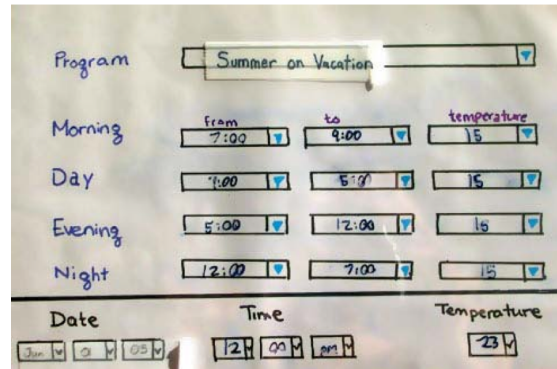 Program Summer on Vacation
from to temperature
Morning 7:00 9:00 15
Day 9:00 5:00 15
Evening 5:00 12:00 15
Night 12:00 7:00 15
Date Time Temperature
Jun 01 03 12 00 pm 23